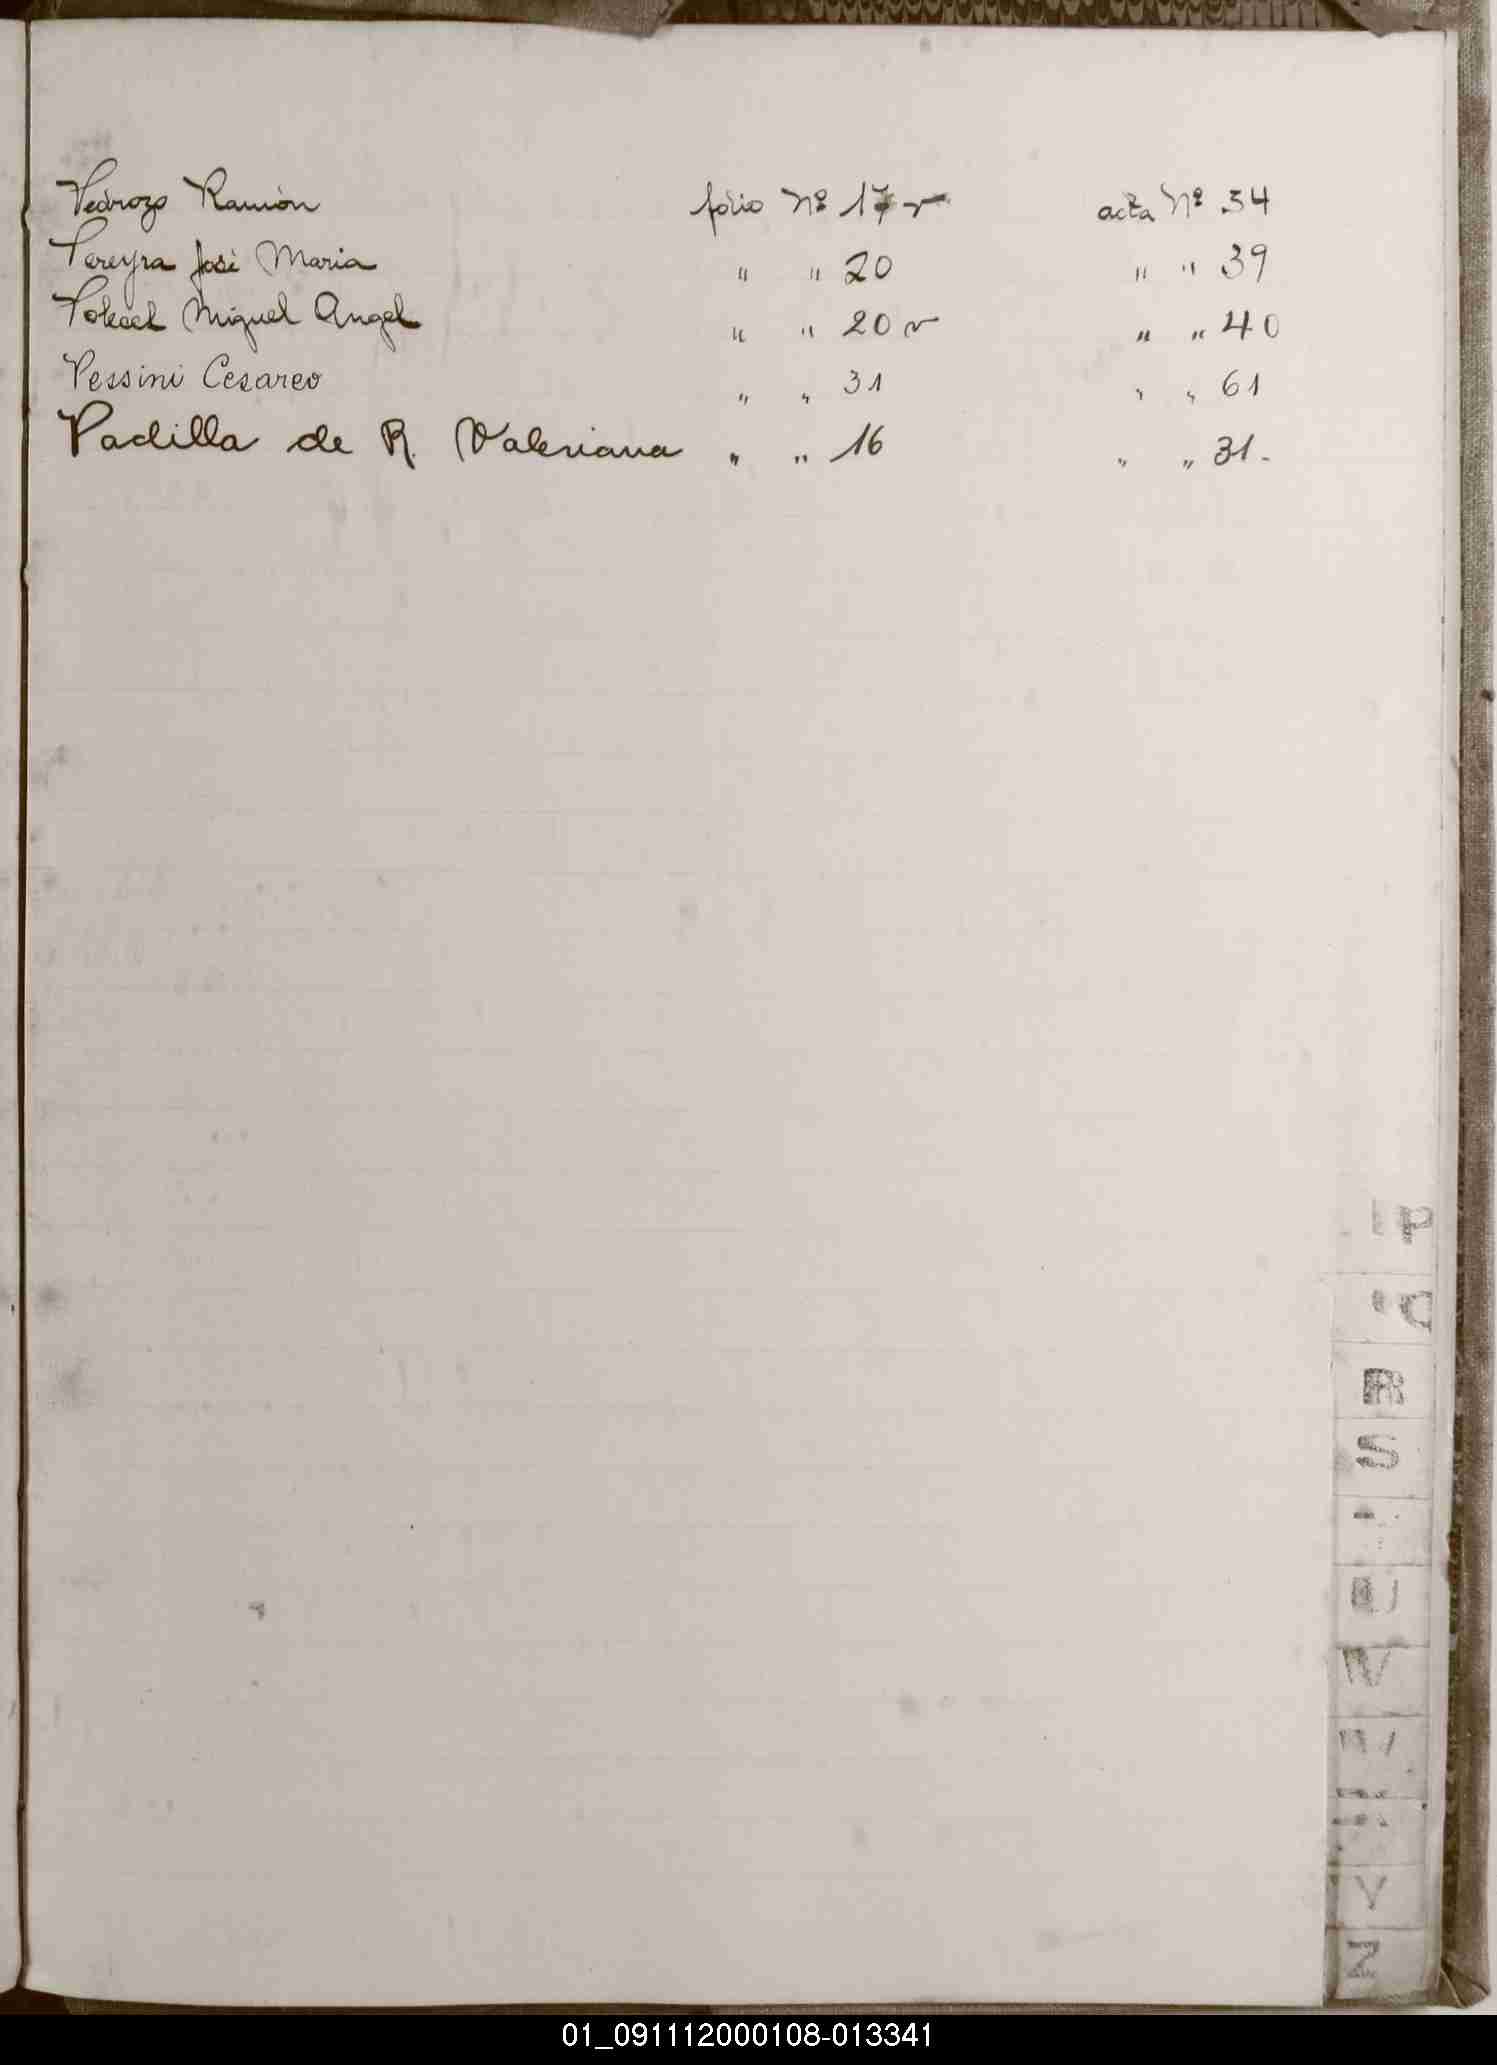 Pedrozo Ramón folio Nº 17 v acta Nº 34
Pereyra José Maria " " 20 " " 39
Miguel Angel " " 20 v " " 40
Pessini Cesareo " " 31 " " 61
Padilla de R. Valeriana " " 16 " " 31.-
P
R
S
U
V
Y
Z
01_091112000108-013341